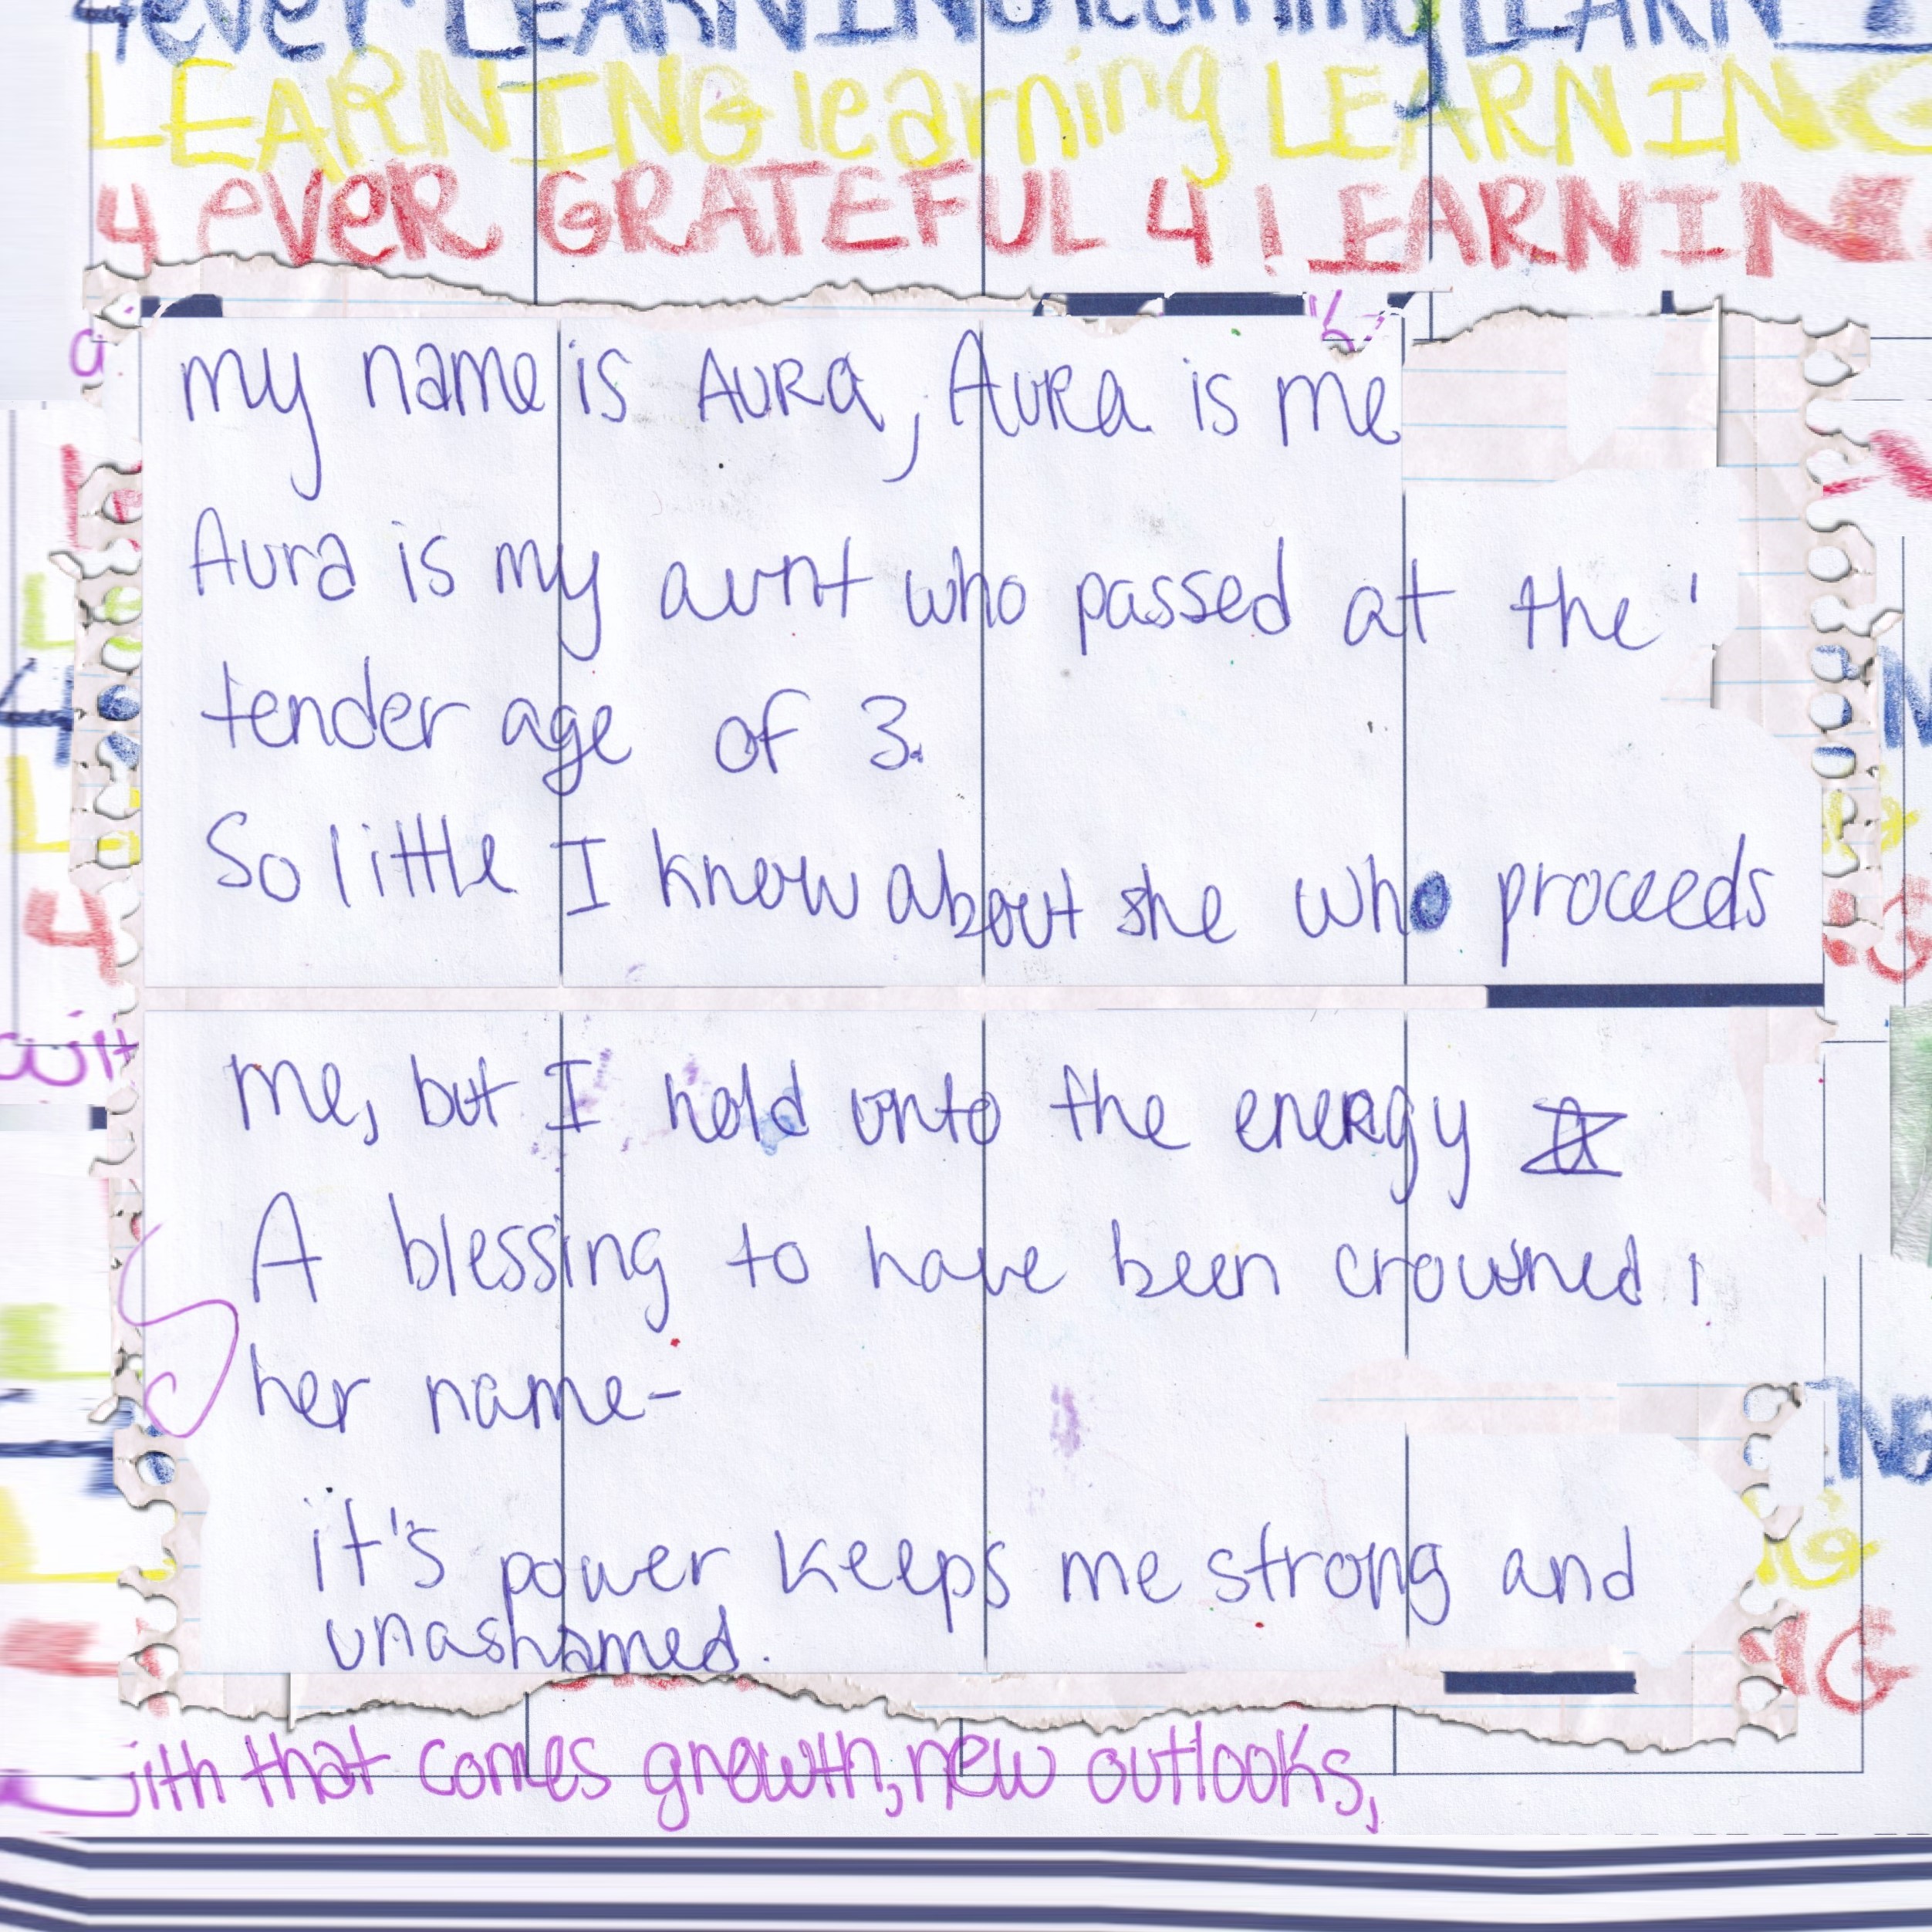 4ever LEARNING learning LEARN
LEARNING learning LEARNING
4 eVeR GRATEFUL 4 LEARNIN
my name is AURa, AURa is me
Aura is my aunt who passed at the
tender age of 3.
So little I know about she who proceeds
me, but I hold onto the eneRgy
A blessing to have been crowned
her name-
it's power keeps me strong and
unashamed.
with that comes growth, new outlooks,